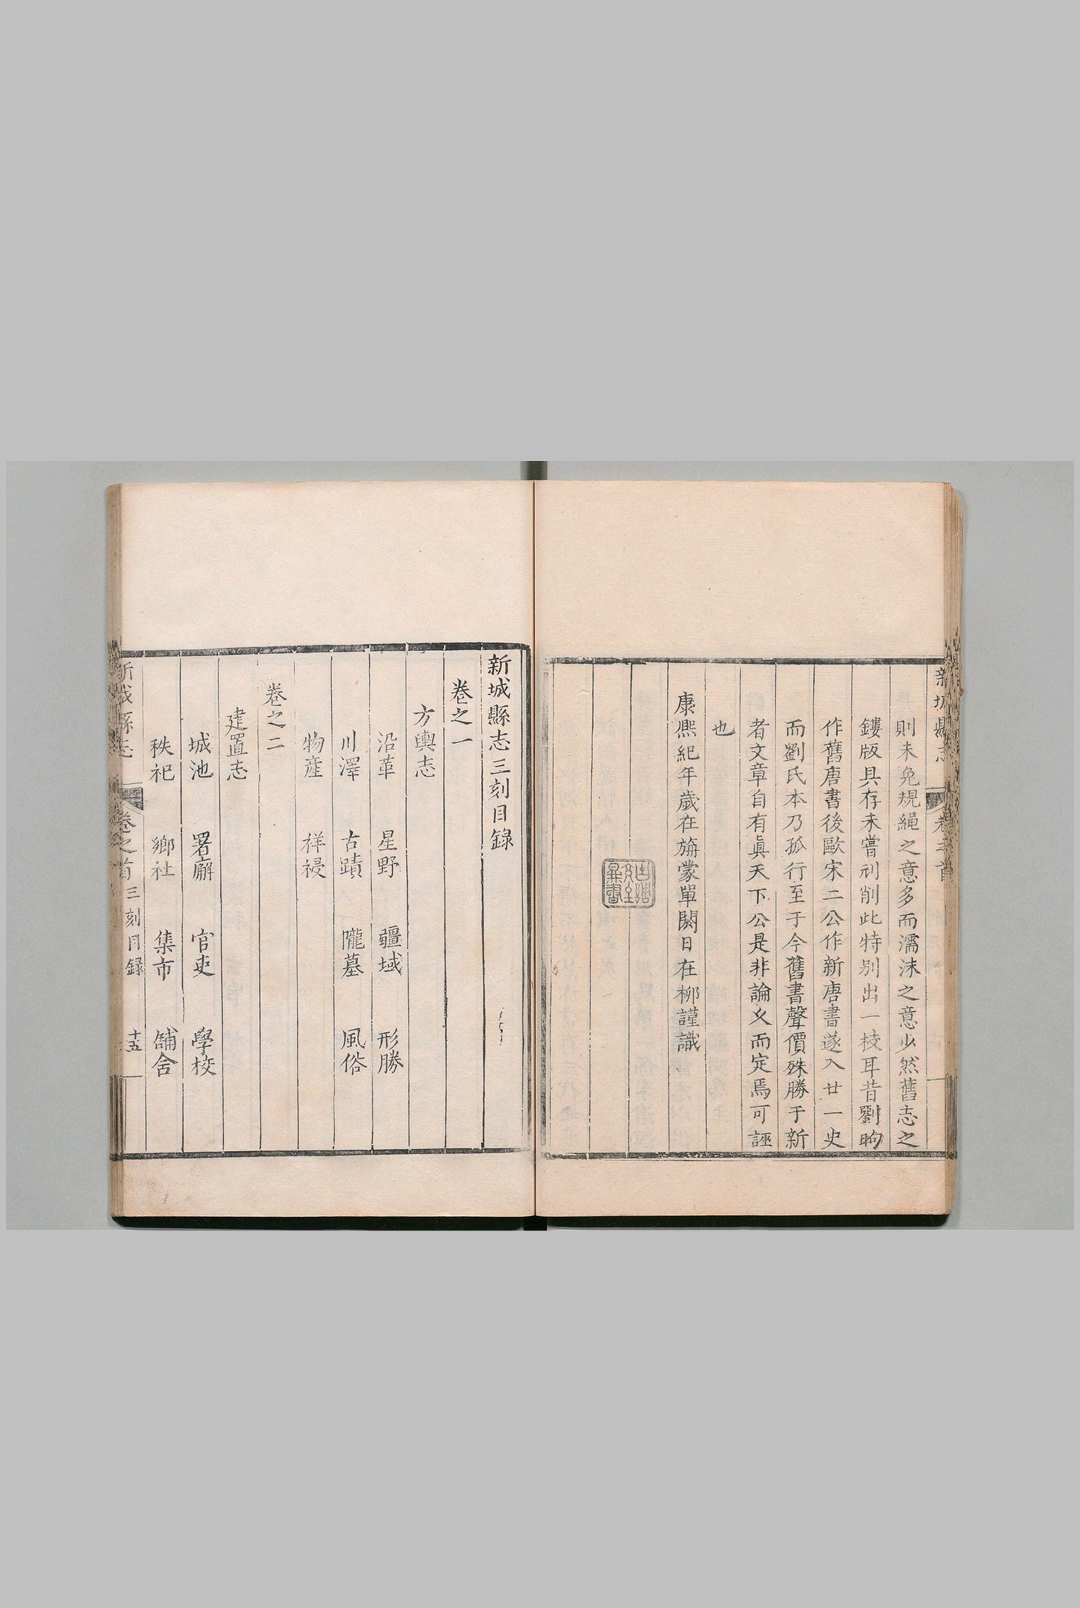 則未免規繩之意多而濡沫之意少然舊志之
鏤版具存未嘗刊削此特別出一枝耳昔劉昫
作舊唐書後歐宋二公作新唐書遂入廿一史
而劉氏本乃孤行至于今舊書聲價殊勝于新
者文章自有眞天下公是非論乆而定焉可誣
也
康熙紀年歲在旃蒙單閼日在柳謹識
新城縣志三刻目錄
卷之一
方輿志
沿革 星野 疆域 形勝
川澤 古蹟 隴墓 風俗
物產 祥祲
卷之二
建置志
城池 署廟 官吏 學校
秩祀 鄉社 集市 舖舍
新城縣志 卷之首 三刻目錄 十五